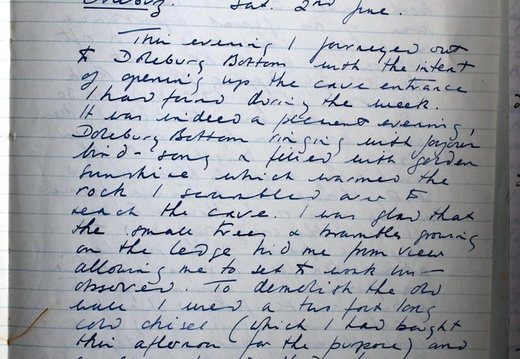 Doleburg. Sat. 2nd June.
This evening I journeyed out
to Doleburg Bottom with the intent
of opening up the cave entrance
I had found during the week.
It was indeed a pleasent evening,
Doleburg Bottom ringing with joyous
bird-song & filled with golden
sunshine which warmed the
rock I scrambled over to
reach the cave. I was glad that
the small trees & brambles growing
on the ledge hid me from view
allowing me to set to work un-
observed. To demolish the old
wall I used a two foot long
cold chisel (which I had bought
this afternoon for the purpose) and